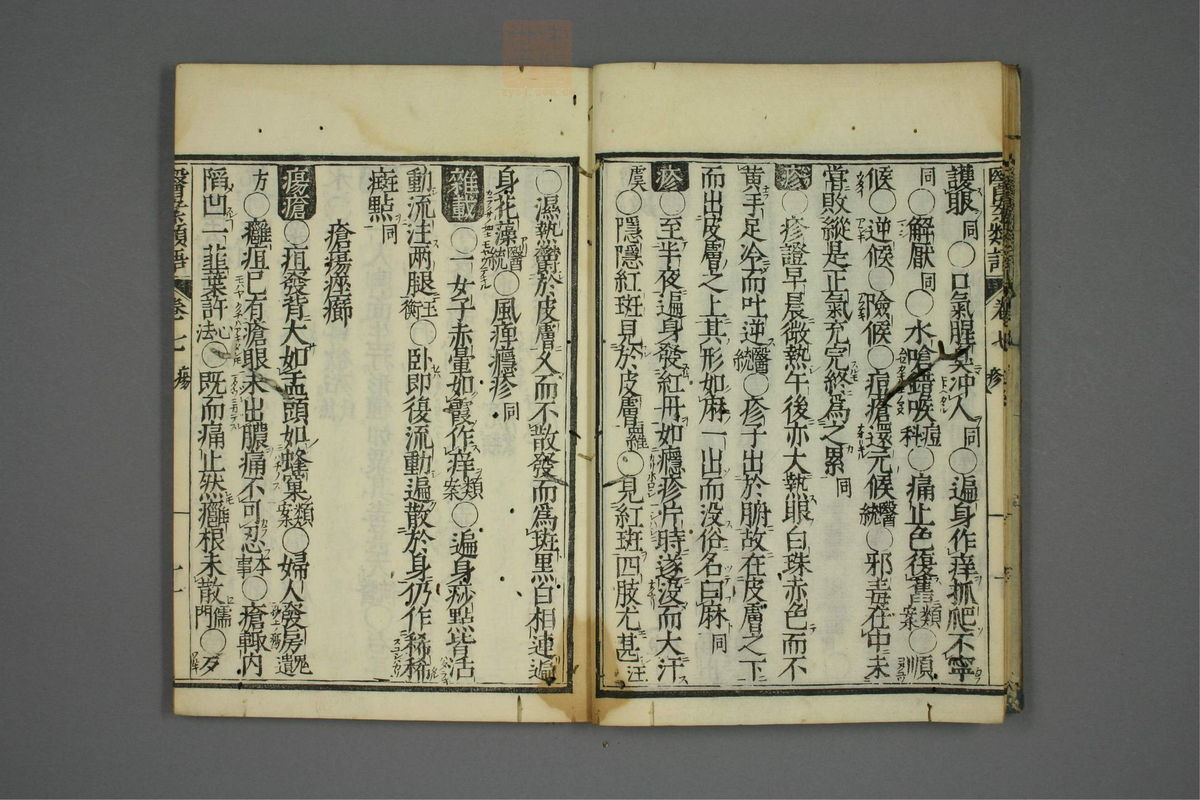 護眼同○口氣腥臭冲人同○遍身作痒抓爬不寧
同○解厭同○水嗆錯喉痘科○痛止色復舊類案○順
候○逆候○險候○痘瘡還元候醫統○邪毒在中未
嘗敗縱是正氣充完終為之累同
疹○疹證早晨微熱午後亦大熱眼白珠赤色而不
黄手足冷而吐逆醫統○疹子出於腑故在皮膚之下
而出皮膚之上其形如麻一出而没俗名曰麻同
疹○至半夜遍身發紅丹如癮疹片時遂没而大汗
虞○隱隱紅斑見於皮膚羅○見紅斑四肢尤甚汪
醫
類語
卷七
疹
○濕熱欝於皮膚久而不散發而為斑黒白相連遍
身花藻醫統○風痺癮疹同
雜載○一女子赤暈如霞作痒類案○遍身痧點皆活
動流注两腿玉衡○卧即復流動遍散於身仍作稀稀
斑點同
瘡瘍瘂癤
瘍瘡○疽發背大如盂頭如蜂窠類案○婦人發房
方○癰疽已有瘡眼未出膿痛不可忍本事○瘡輙内
陷凹一韮葉許心法○既而痛止然癰根未散儒門○歹
類語
卷七
瘍